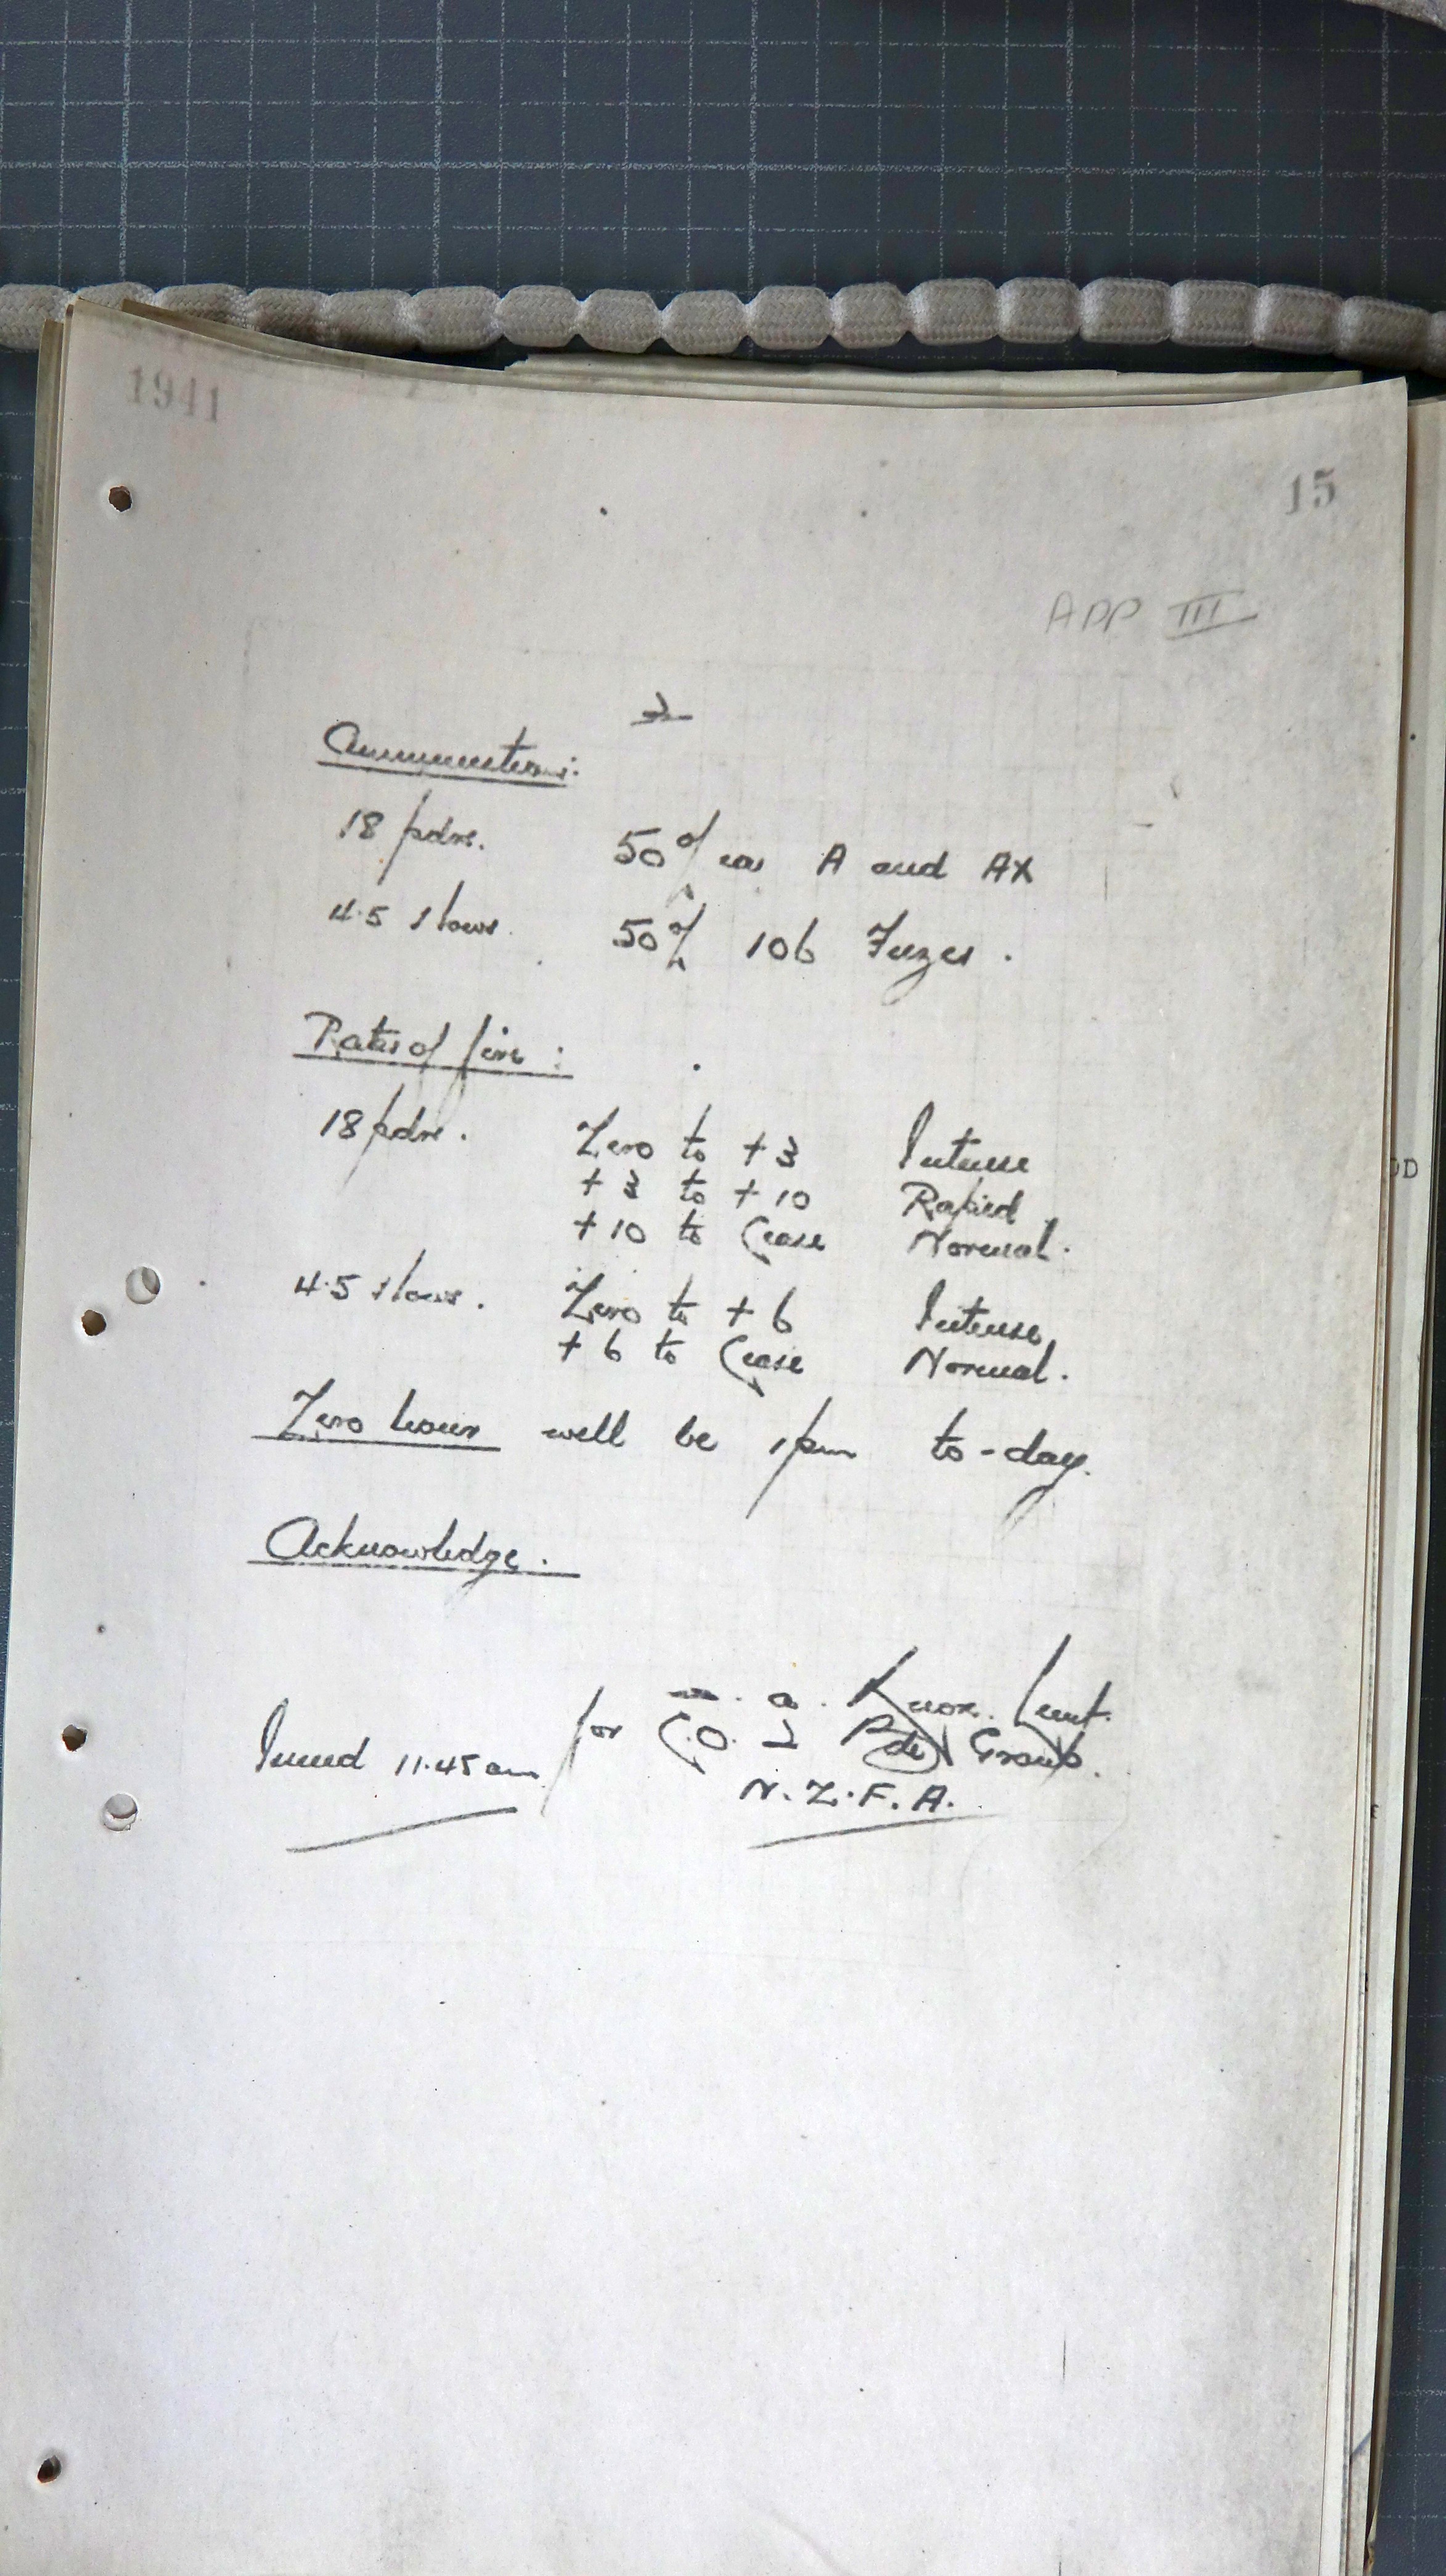 1941
15
APP III
2
Ammunition:
18 pdrs. 50% ea A and AX
4.5 Hows. 50% 106 Fuzes.
Rates of fire:
18 pdrs. Zero to +3 Intense
+3 to +10 Rapid
+10 to Cease Normal.
4.5 Hows. Zero to +6 Intense
+6 to Cease Normal.
Zero hour will be 1pm to-day.
Acknowledge.
a. Knox. Lieut.
Issued 11.45am for C.O. 2 Bde Group.
N.Z.F.A.
DD